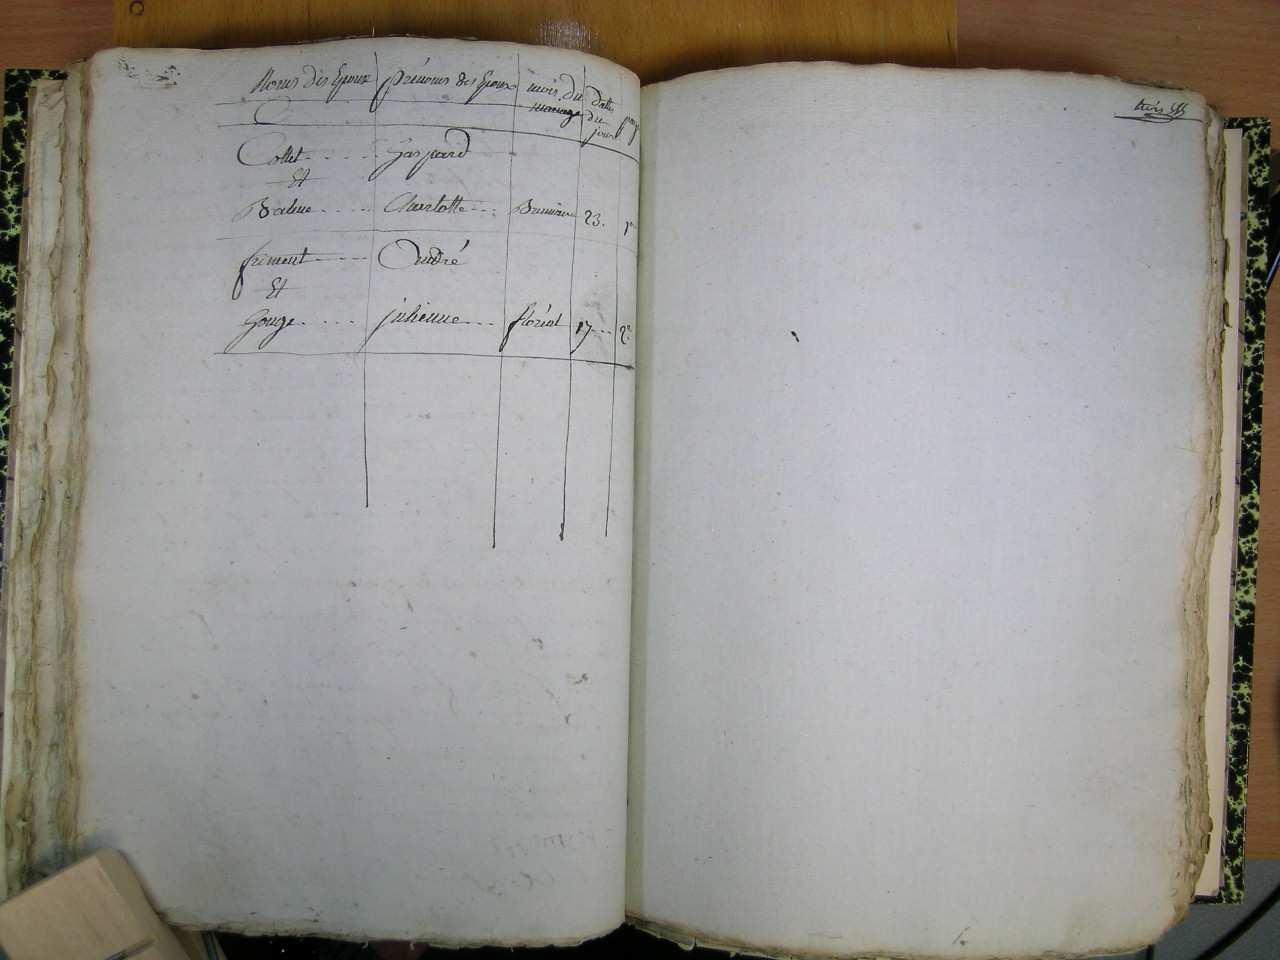 Noms des Epoux prénoms des Epoux mois du mariage dates du jour page
Collet . . . . . Gaspard
Et
. . . . Charlotte . . . 23. 1re
froment . . . . . André
Et
Gouge . . . . julienne . . . floréal 17 . . . 2e
trois